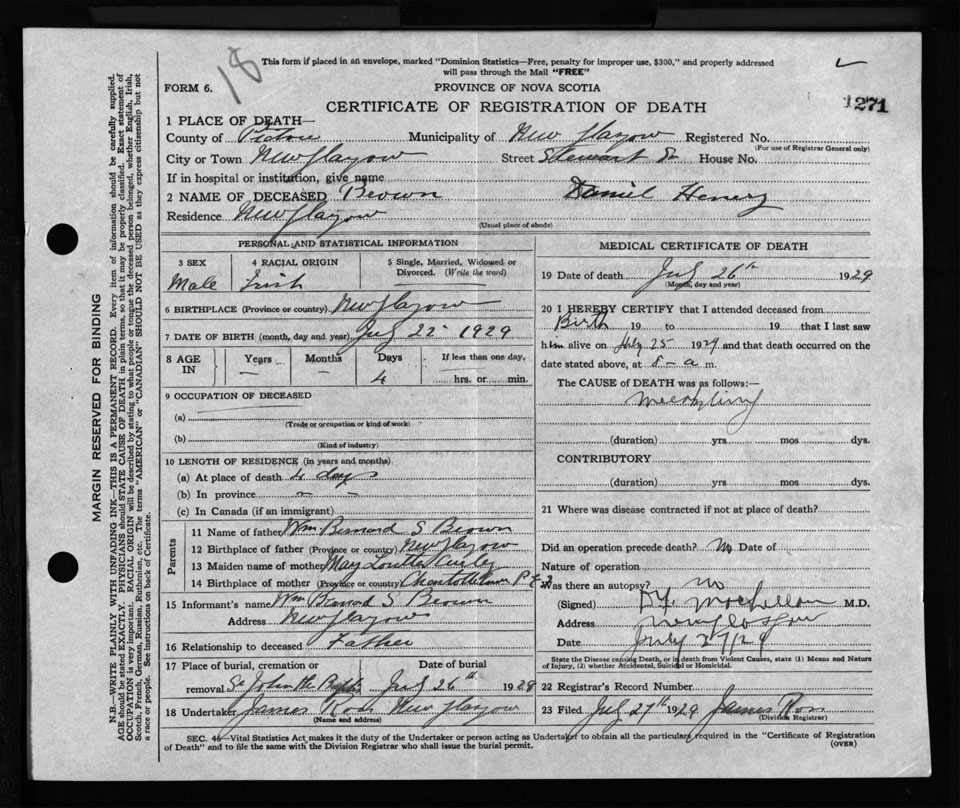 18
This form if placed in an envelope, marked "Dominion Statistics—Free, penalty for improper use, $300," and properly addressed
will pass through the Mail "FREE"
FORM 6.
PROVINCE OF NOVA SCOTIA
CERTIFICATE OF REGISTRATION OF DEATH
1271
1 PLACE OF DEATH—
County of Pictou Municipality of New Glasgow Registered No.
(For use of Registrar General only)
City or Town New Glasgow Street Stewart St House No.
If in hospital or institution, give name
2 NAME OF DECEASED Brown Daniel Henery
Residence New Glasgow
(Usual place of abode)
PERSONAL AND STATISTICAL INFORMATION
3 SEX
Male
4 RACIAL ORIGIN
Irish
5 Single, Married, Widowed or
Divorced. (Write the word)
6 BIRTHPLACE (Province or country) New Glasgow
7 DATE OF BIRTH (month, day and year) July 22 1929
8 AGE IN
Years – Months – Days 4
If less than one day,
hrs. or min.
9 OCCUPATION OF DECEASED
(a)
(Trade or occupation or kind of work)
(b)
(Kind of industry)
10 LENGTH OF RESIDENCE (in years and months)
(a) At place of death 4 days
(b) In province – –
(c) In Canada (if an immigrant)
Parents
11 Name of father Wm Bernard S Brown
12 Birthplace of father (Province or country) New Glasgow
13 Maiden name of mother Mary
14 Birthplace of mother (Province or country) Charlottetown P E I
15 Informant's name Wm Bernard S Brown
Address New Glasgow
16 Relationship to deceased Father
17 Place of burial, cremation or Date of burial
removal St John the July 26th 1929
18 Undertaker James Ross New Glasgow
(Name and address)
MEDICAL CERTIFICATE OF DEATH
19 Date of death July 26th 1929
(Month, day and year)
20 I HEREBY CERTIFY that I attended deceased from
Birth 19 to 19 that I last saw
him alive on July 25 1929 and that death occurred on the
date stated above, at 8 – a m.
The CAUSE of DEATH was as follows:—
(duration) yrs mos dys.
CONTRIBUTORY
(duration) yrs mos dys.
21 Where was disease contracted if not at place of death?
Did an operation precede death? No Date of
Nature of operation
Was there an autopsy? no
(Signed) M.D.
Address New Glasgow
Date July 27/29
State the Disease causing Death, or in death from Violent Causes, state (1) Means and Nature
of Injury, (2) whether Accidental, Suicidal or Homicidal.
22 Registrar's Record Number
23 Filed July 27th 1929 James Ross
(Division Registrar)
SEC. 46—Vital Statistics Act makes it the duty of the Undertaker or person acting as Undertaker to obtain all the particulars required in the "Certificate of Registration
of Death" and to file the same with the Division Registrar who shall issue the burial permit.
(OVER)
MARGIN RESERVED FOR BINDING
N.B.—WRITE PLAINLY WITH UNFADING INK—THIS IS A PERMANENT RECORD. Every item of information should be carefully supplied.
AGE should be stated EXACTLY. PHYSICIANS should STATE CAUSE OF DEATH in plain terms, so that it may be properly classified. Exact statement of
OCCUPATION is very important. RACIAL ORIGIN will be described by stating to what people or tongue the deceased person belonged, whether English, Irish,
Scotch, French, German, Russian, Ruthenian, etc. The terms "AMERICAN" or "CANADIAN" SHOULD NOT BE USED as they express citizenship but not
a race or people. See instructions on back of Certificate.